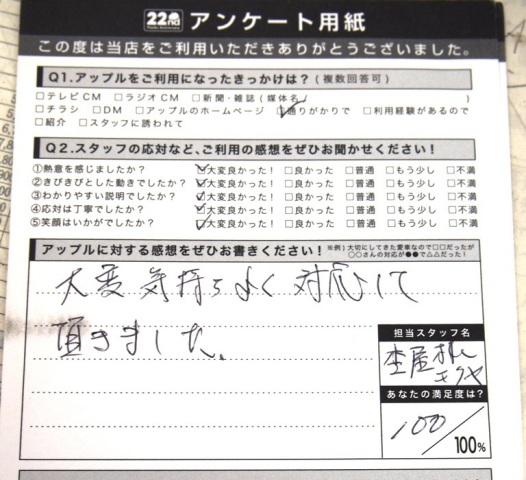 22nd アンケート用紙
この度は当店をご利用いただきありがとうございました。
Q1.アップルをご利用になったきっかけは?(複数回答可)
□テレビCM □ラジオCM □新聞・雑誌(媒体名 )
□チラシ □DM □アップルのホームページ ☑通りがかりで □利用経験があるので
□紹介 □スタッフに誘われて
Q2.スタッフの応対など、ご利用の感想をぜひお聞かせください!
①熱意を感じましたか? ☑大変良かった! □良かった □普通 □もう少し □不満
②きびきびとした動きでしたか? ☑大変良かった! □良かった □普通 □もう少し □不満
③わかりやすい説明でしたか? ☑大変良かった! □良かった □普通 □もう少し □不満
④応対は丁寧でしたか? ☑大変良かった! □良かった □普通 □もう少し □不満
⑤笑顔はいかがでしたか? ☑大変良かった! □良かった □普通 □もう少し □不満
アップルに対する感想をぜひお書きください!
※例)大切にしてきた愛車なので□□だったが
○○さんの対応が●●で△△だった!
大変気持ちよく対応して
頂きました。
担当スタッフ名
杢屋様
モクヤ
あなたの満足度は?
100/100%